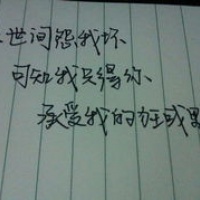 世间怨我坏
可知我只得你
承受我的狂或野